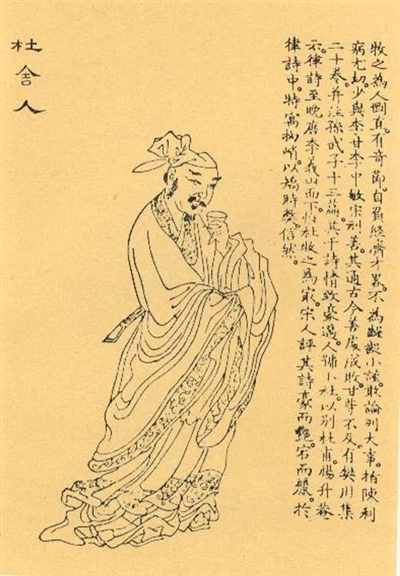 牧之為人剛直。有奇節。自負經濟才畧。不為齪齪小謹。敢論列大事。指陳利
病尤切。少與李甘李中敏宋邧善。其通古今善處成敗。甘等不及。有樊川集
二十卷。并注孫武子十三篇。其于詩情致豪邁。人號小杜。以別杜甫。楊升菴
云。律詩至晚唐。李義山而下。惟杜牧之為最。宋人評其詩。豪而艷。宕而麗。於
律詩中。特寓拗峭。以矯時弊。信然。
杜舍人